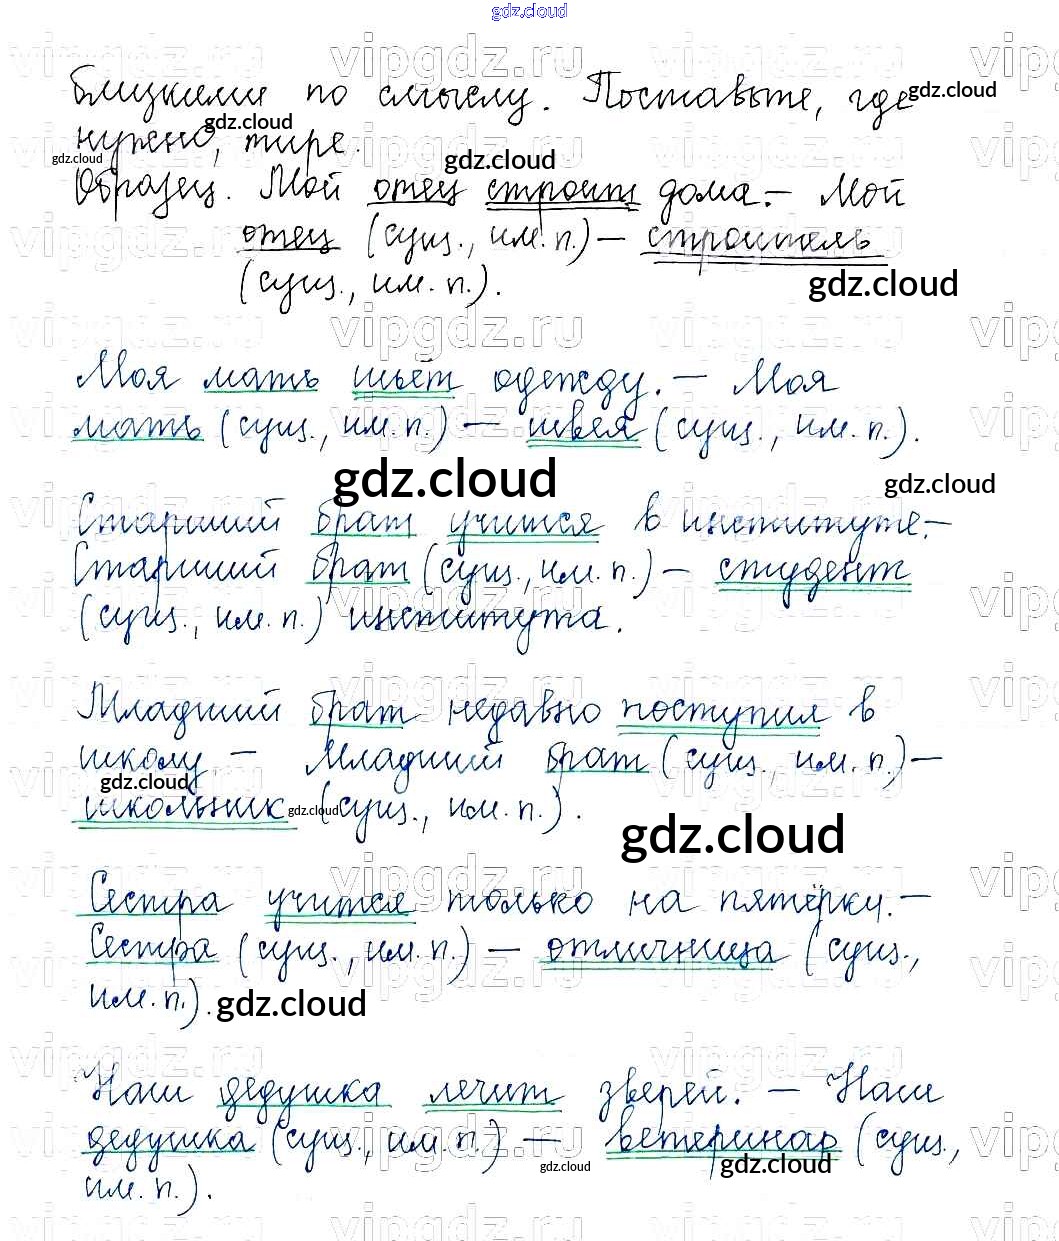 gdz.cloud
близкими по смыслу. Поставьте, где
нужно, тире.
Образец. Мой отец строит дома. – Мой
отец (сущ., им. п.) – строитель
(сущ., им. п.).
Моя мать шьёт одежду. – Моя
мать (сущ., им. п.) – швея (сущ., им. п.).
Старший брат учится в институте. –
Старший брат (сущ., им. п.) – студент
(сущ., им. п.) института.
Младший брат недавно поступил в
школу – Младший брат (сущ., им. п.) –
школьник (сущ., им. п.).
Сестра учится только на пятёрки. –
Сестра (сущ., им. п.) – отличница (сущ.,
им. п.).
Наш дедушка лечит зверей. – Наш
дедушка (сущ., им. п.) – ветеринар (сущ.,
им. п.).